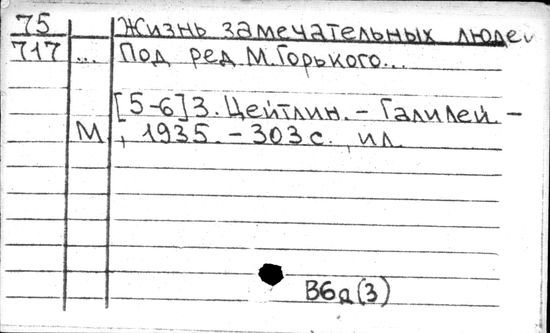 75 Жизнь замечательных людей
717 ... Под ред М.Горького...
[5-6] З. Цейтлин. - Галилей. -
М , 1935. - 303 с., ил.
В6д(3)